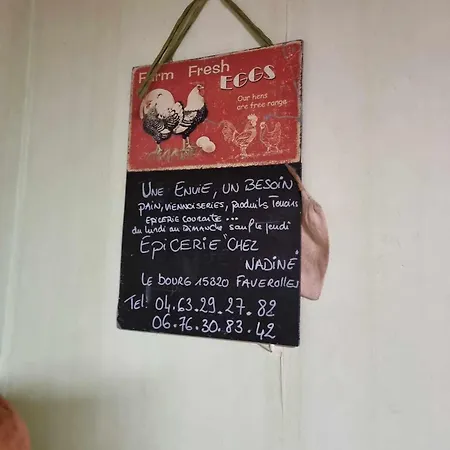 Farm Fresh
EGGS
Our hens
are free range
UNE ENVIE, UN BESOIN
PAIN, VIENNOISERIES, PRODUITS
EPICERIE COURANTE ...
du lundi au Dimanche sauf le jeudi
EPICERIE CHEZ
NADINE
LE BOURG 15320 FAVEROLLES
Tel: 04.63.29.27.82
06.76.30.83.42